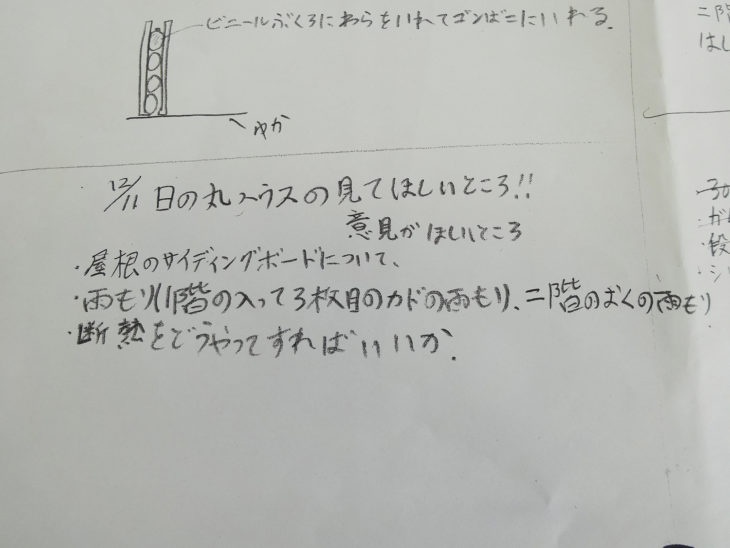 ビニールぶくろにわらをいれてゴンばこにいれる。
ゆか
二階
はし
12/11 日の丸ハウスの見てほしいところ!!
意見がほしいところ
・屋根のサイディングボードについて、
・雨もり(1階の入って3枚目のカドの雨もり、二階のおくの雨もり
・断熱をどうやってすればいいか.
・段
・シ